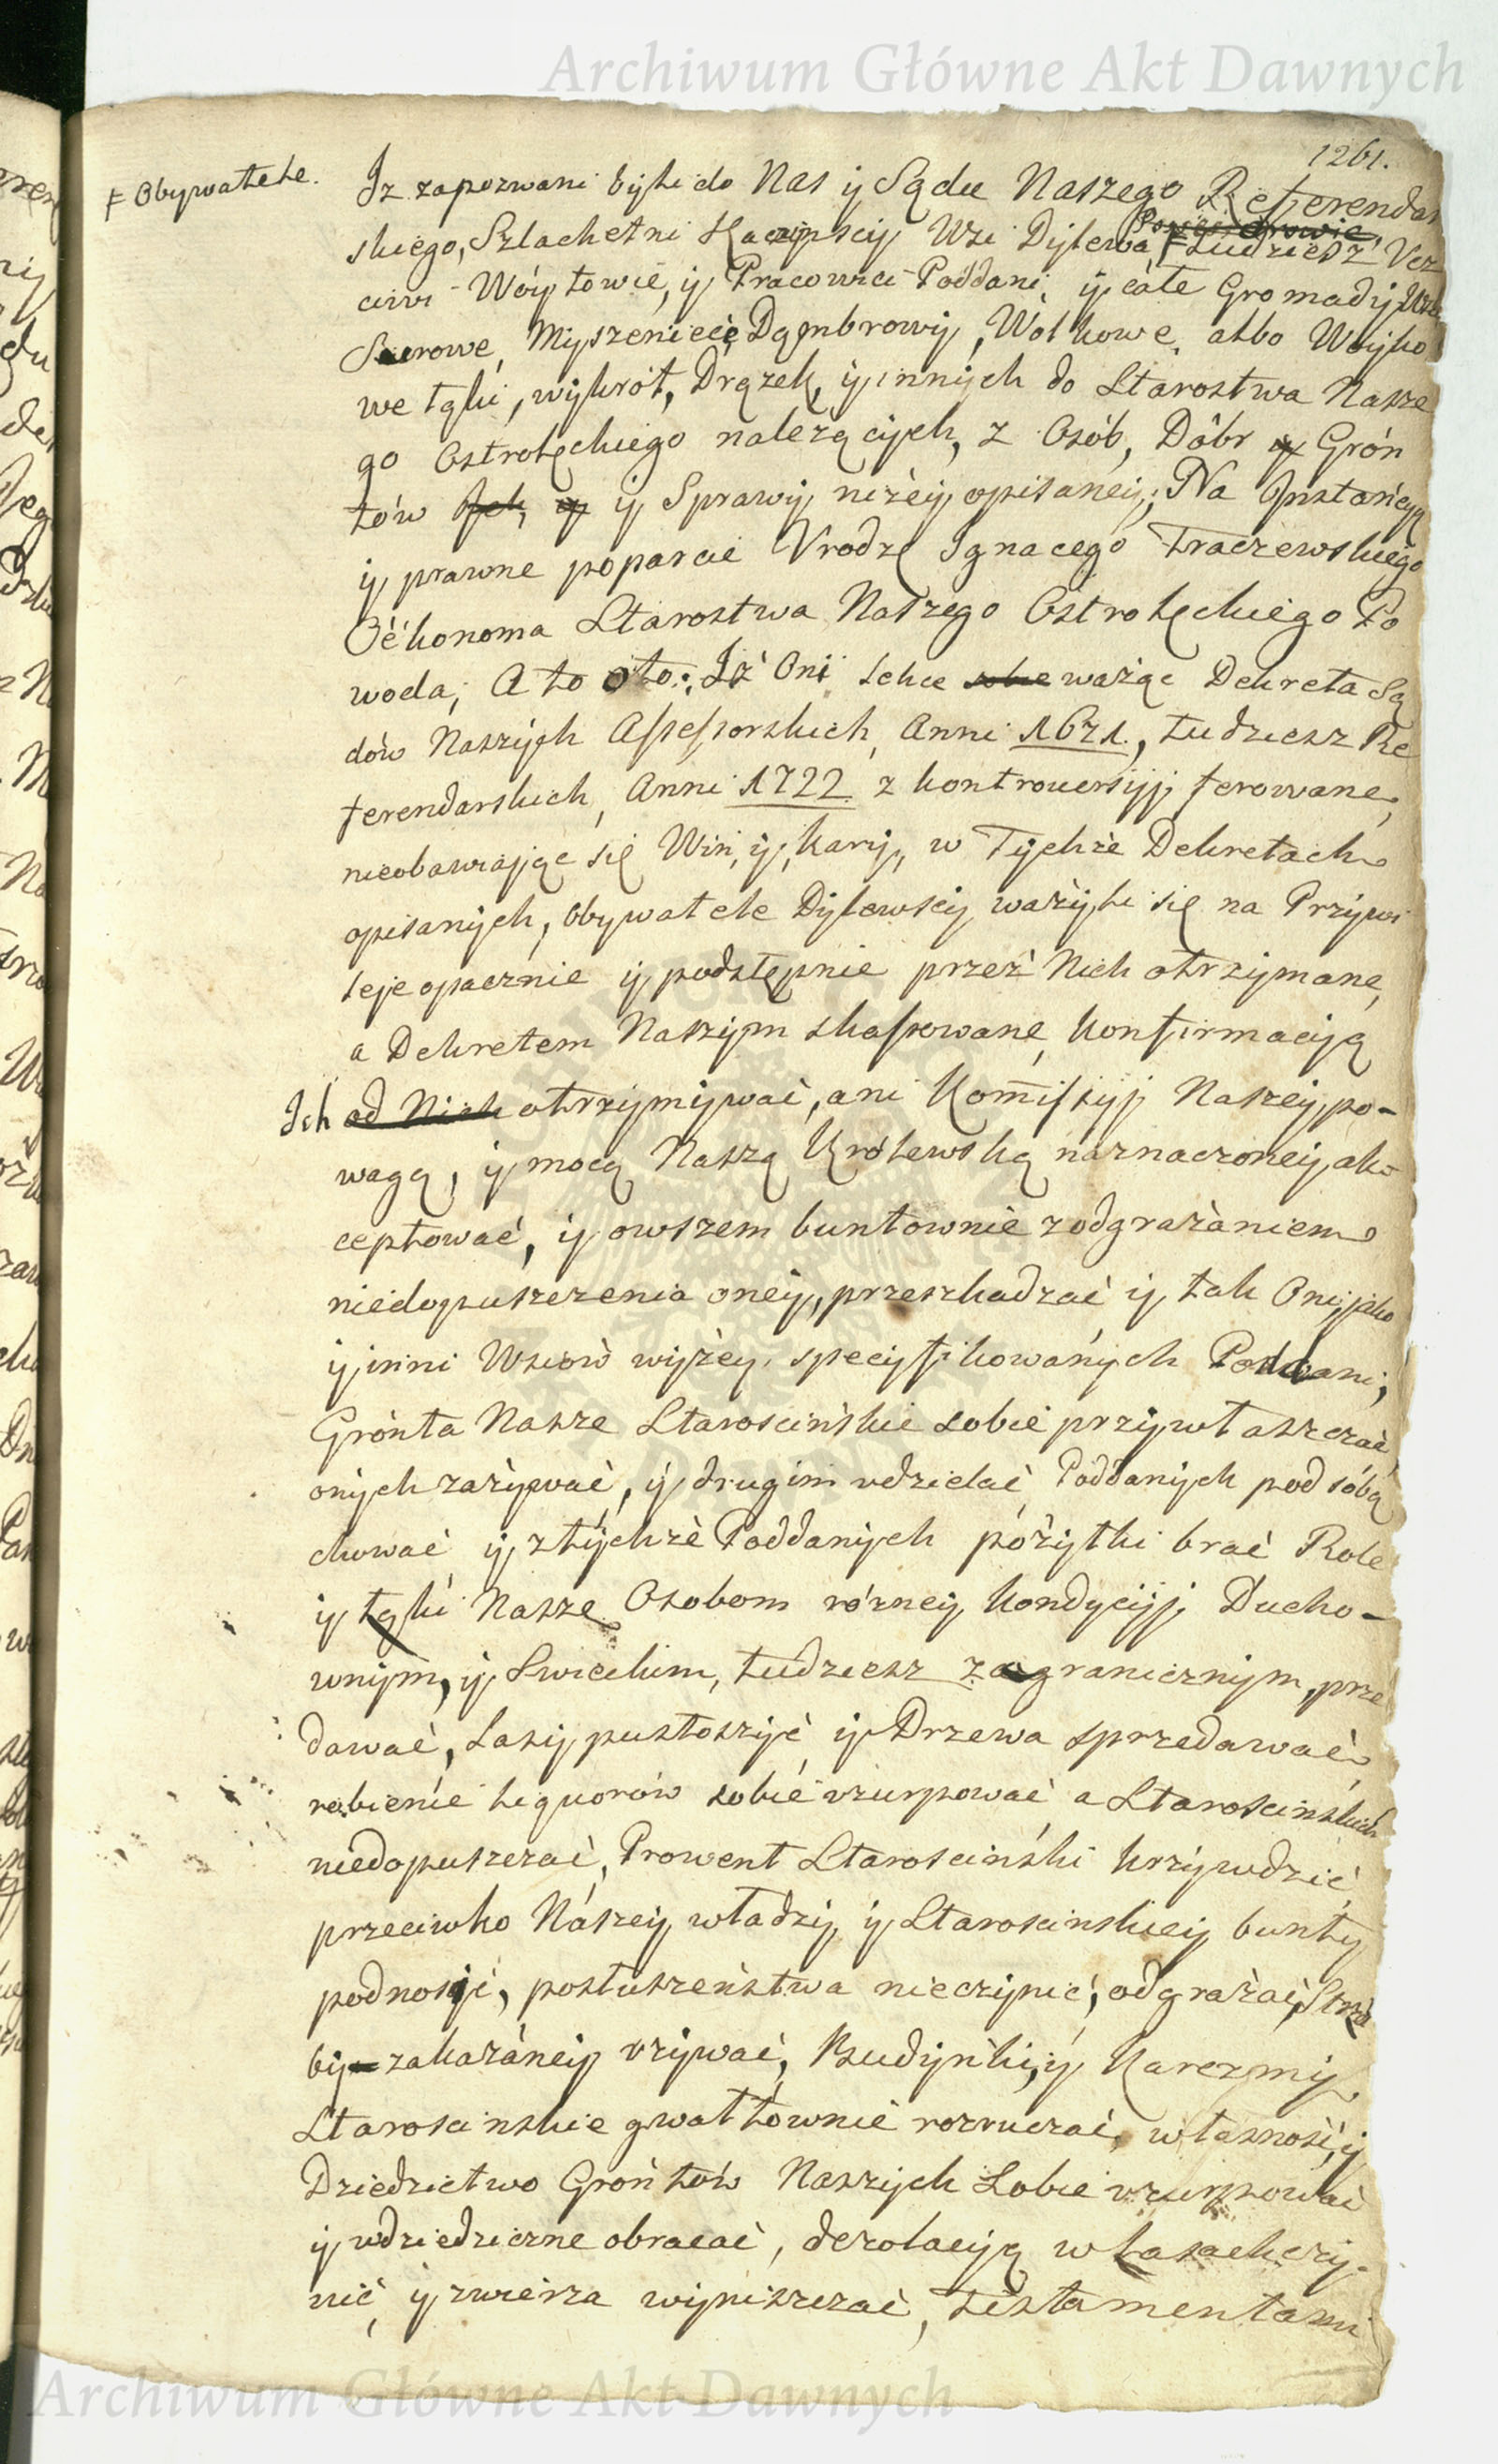 Archiwum Główne Akt Dawnych
1261.
Ɨ Obywatele.
Iz zapozwani byli do Nas y Sądu Naszego Referendar
skiego, Szlachetni Kaczynscy Wsi Dylewa, Ɨ Tudziesz Vcz
ciwi Wóytowie, y Pracowici Poddani, y całe Gromady Wsi
Surowe, Myszeniecé Dąmbrowy, Wolkowe, albo Woyko
we łąki, wykrót, Drązek, y innych do Starostwa Nasze
go Ostrołęckiego nalezących, z Osób, Dóbr y Grón
tów Ich y y Sprawy niżéy opisanéy; Na Instancyą
y prawne poparcie Vrodze Ignacego Traczewskiego
Oékonoma Starostwa Naszego Ostrołęckiego Po
woda; A to o to: Iż Oni lekce sobie ważąc Dekreta Są
dów Naszych Assessorskich, Anni 1671., tudziesz Re
ferendarskich, Anni 1722 z kontrowersyi ferowane,
nieobawiając się Win, y, kary, w Tychże Dekretach
opisanych, Obywatele Dylewscy ważyli się na Przywi
leje opacznie y podstępnie przeż Nich otrzymane,
a Dekretem Naszym skassowane, Konfirmacyą
Ich od Nich otrzymywać, ani Kommissyi Naszey po-
wagą, y mocą Naszą Królewską naznaczoney ak-
ceptować, y owszem buntownie z odgrażaniem
niedopuszczenia oney, przeszkadzać y tak Oni, jako
y inni Wsiow wyżey specyfikowanych Poddani,
Grónta Nasze Starościńskie sobie przywłaszczać,
onych zażywać, y drugim udzielać, Poddanych pod sobą
chować y z tychże Poddanych pożytki brać Role
y łąki Nasze Osobom rózney Kondycyi Ducho-
wnym, y Swieckim, tudziesz zagranicznym, prze
dawać, Lasy pustoszyć y Drzewa sprzedawać,
robienie liquorów sobie vzurpować a Starościńskich
niedopuszczać, Prowent Starościński krzywdzić
przeciwko Nászey władzy y Starościnskiey bunty
podnosić, posłuszeństwa nieczynić, odgrażać, Strzel
by zakazáney vżywać, Budynki, y Karczmy
Starościnskie gwałtownie rozrucać, własność, y
Dziedzictwo Gróntów Naszych Sobie vzurpować
y wdziedziczne obracać, dezolacyą w Łasach czy-
nić, y zwierza wyniszczać, Testamentami
Archiwum Główne Akt Dawnych